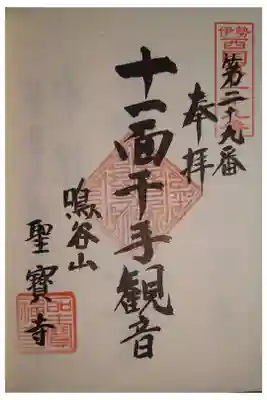 伊勢
西国
第二十九番
奉拝
十一面千手観音
鳴谷山
聖寶寺